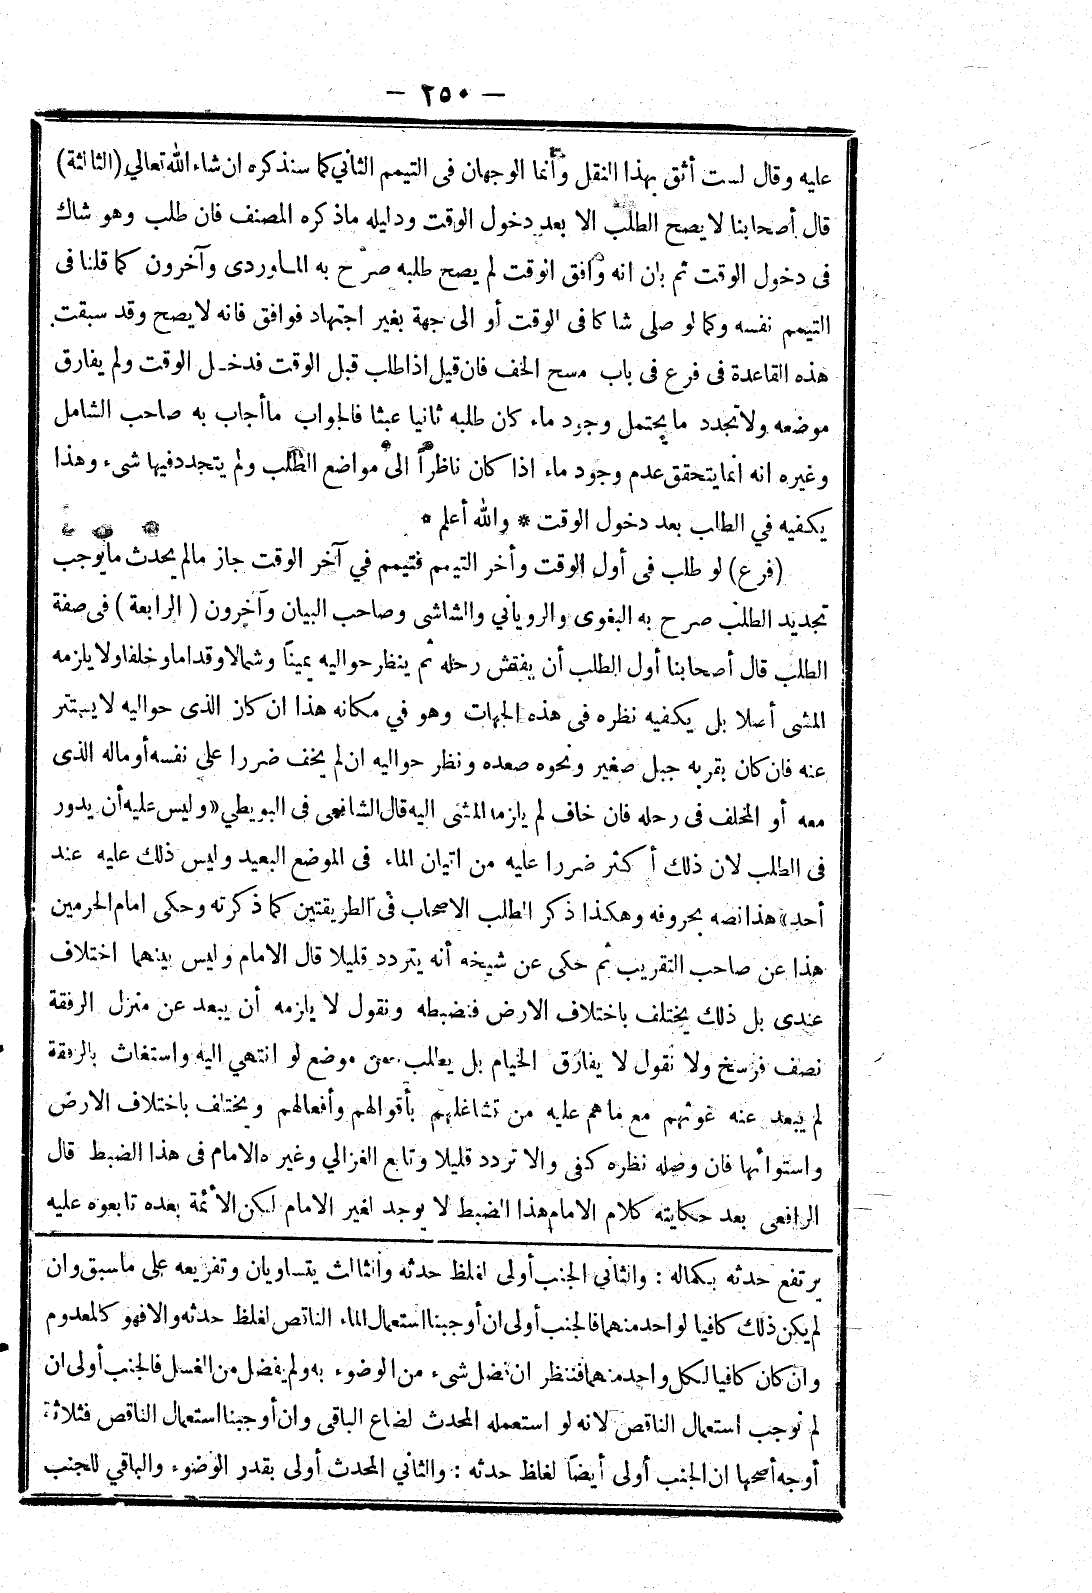 — ٢٥٠ —
عليه وقال لست أثق بهذا النقل وأنما الوجهان فى التيمم الثاني كما سنذكره ان شاء الله تعالي (الثالثة)
قال أصحابنا لا يصح الطلب الا بعد دخول الوقت ودليله ماذكره المصنف فان طلب وهو شاك
فى دخول الوقت ثم بان انه وافق الوقت لم يصح طلبه صرح به الماوردى وآخرون كما قلنا فى
التيمم نفسه وكما لو صلى شاكا فى الوقت أو الى جهة بغير اجتهاد فوافق فانه لا يصح وقد سبقت
هذه القاعدة فى فرع فى باب مسح الخف فان قيل اذا طلب قبل الوقت فدخل الوقت ولم يفارق
موضعه ولا تجدد ما يحتمل وجود ماء كان طلبه ثانيا عبثا فالجواب ما أجاب به صاحب الشامل
وغيره انه انما يتحقق عدم وجود ماء اذا كان ناظراً الى مواضع الطلب ولم يتجدد فيها شىء وهذا
يكفيه في الطلب بعد دخول الوقت * والله أعلم *
(فرع) لو طلب فى أول الوقت وأخر التيمم فتيمم في آخر الوقت جاز مالم يحدث ما يوجب
تجديد الطلب صرح به البغوى والروياني والشاشى وصاحب البيان وآخرون ( الرابعة ) فى صفة
الطلب قال أصحابنا أول الطلب أن يفتش رحله ثم ينظر حواليه يمينًا وشمالا وقداما وخلفا ولا يلزمه
المشى أصلا بل يكفيه نظره فى هذه الجهات وهو في مكانه هذا ان كان الذى حواليه لا يستتر
عنه فان كان بقربه جبل صغير ونحوه صعده ونظر حواليه ان لم يخف ضررا على نفسه أو ماله الذى
معه أو المخلف فى رحله فان خاف لم يلزمه المشى اليه قال الشافعى فى البويطي «وليس عليه أن يدور
فى الطلب لان ذلك أكثر ضررا عليه من اتيان الماء فى الموضع البعيد وليس ذلك عليه عند
أحد» هذا نصه بحروفه وهكذا ذكر الطلب الاصحاب فى الطريقتين كما ذكرته وحكى امام الحرمين
هذا عن صاحب التقريب ثم حكى عن شيخه أنه يتردد قليلا قال الامام وليس بينهما اختلاف
عندى بل ذلك يختلف باختلاف الارض فنضبطه ونقول لا يلزمه أن يبعد عن منزل الرفقة
نصف فرسخ ولا نقول لا يفارق الخيام بل يطلب من موضع لو انتهي اليه واستغاث بالرفقة
لم يبعد عنه غوثهم مع ما هم عليه من تشاغلهم بأقوالهم وأفعالهم ويختلف باختلاف الارض
واستوائها فان وصله نظره كفى والا تردد قليلا وتابع الغزالي وغيره الامام فى هذا الضبط قال
الرافعى بعد حكايته كلام الامام هذا الضبط لا يوجد لغير الامام لكن الأئمة بعده تابعوه عليه
يرتفع حدثه بكماله : والثاني الجنب أولى لغلظ حدثه والثالث يتساويان وتفريعه على ما سبق وان
لم يكن ذلك كافيا لواحد منهما فالجنب أولى ان أوجبنا استعمال الماء الناقص لغلظ حدثه والا فهو كالمعدوم
وان كان كافيا لكل واحد منهما فننظر ان فضل شىء من الوضوء به ولم يفضل من الغسل فالجنب أولى ان
لم نوجب استعمال الناقص لانه لو استعمله المحدث لضاع الباقى وان أوجبنا استعمال الناقص فثلاثة
أوجه أصحها ان الجنب أولى أيضًا لغلظ حدثه : والثاني المحدث أولى بقدر الوضوء والباقي للجنب